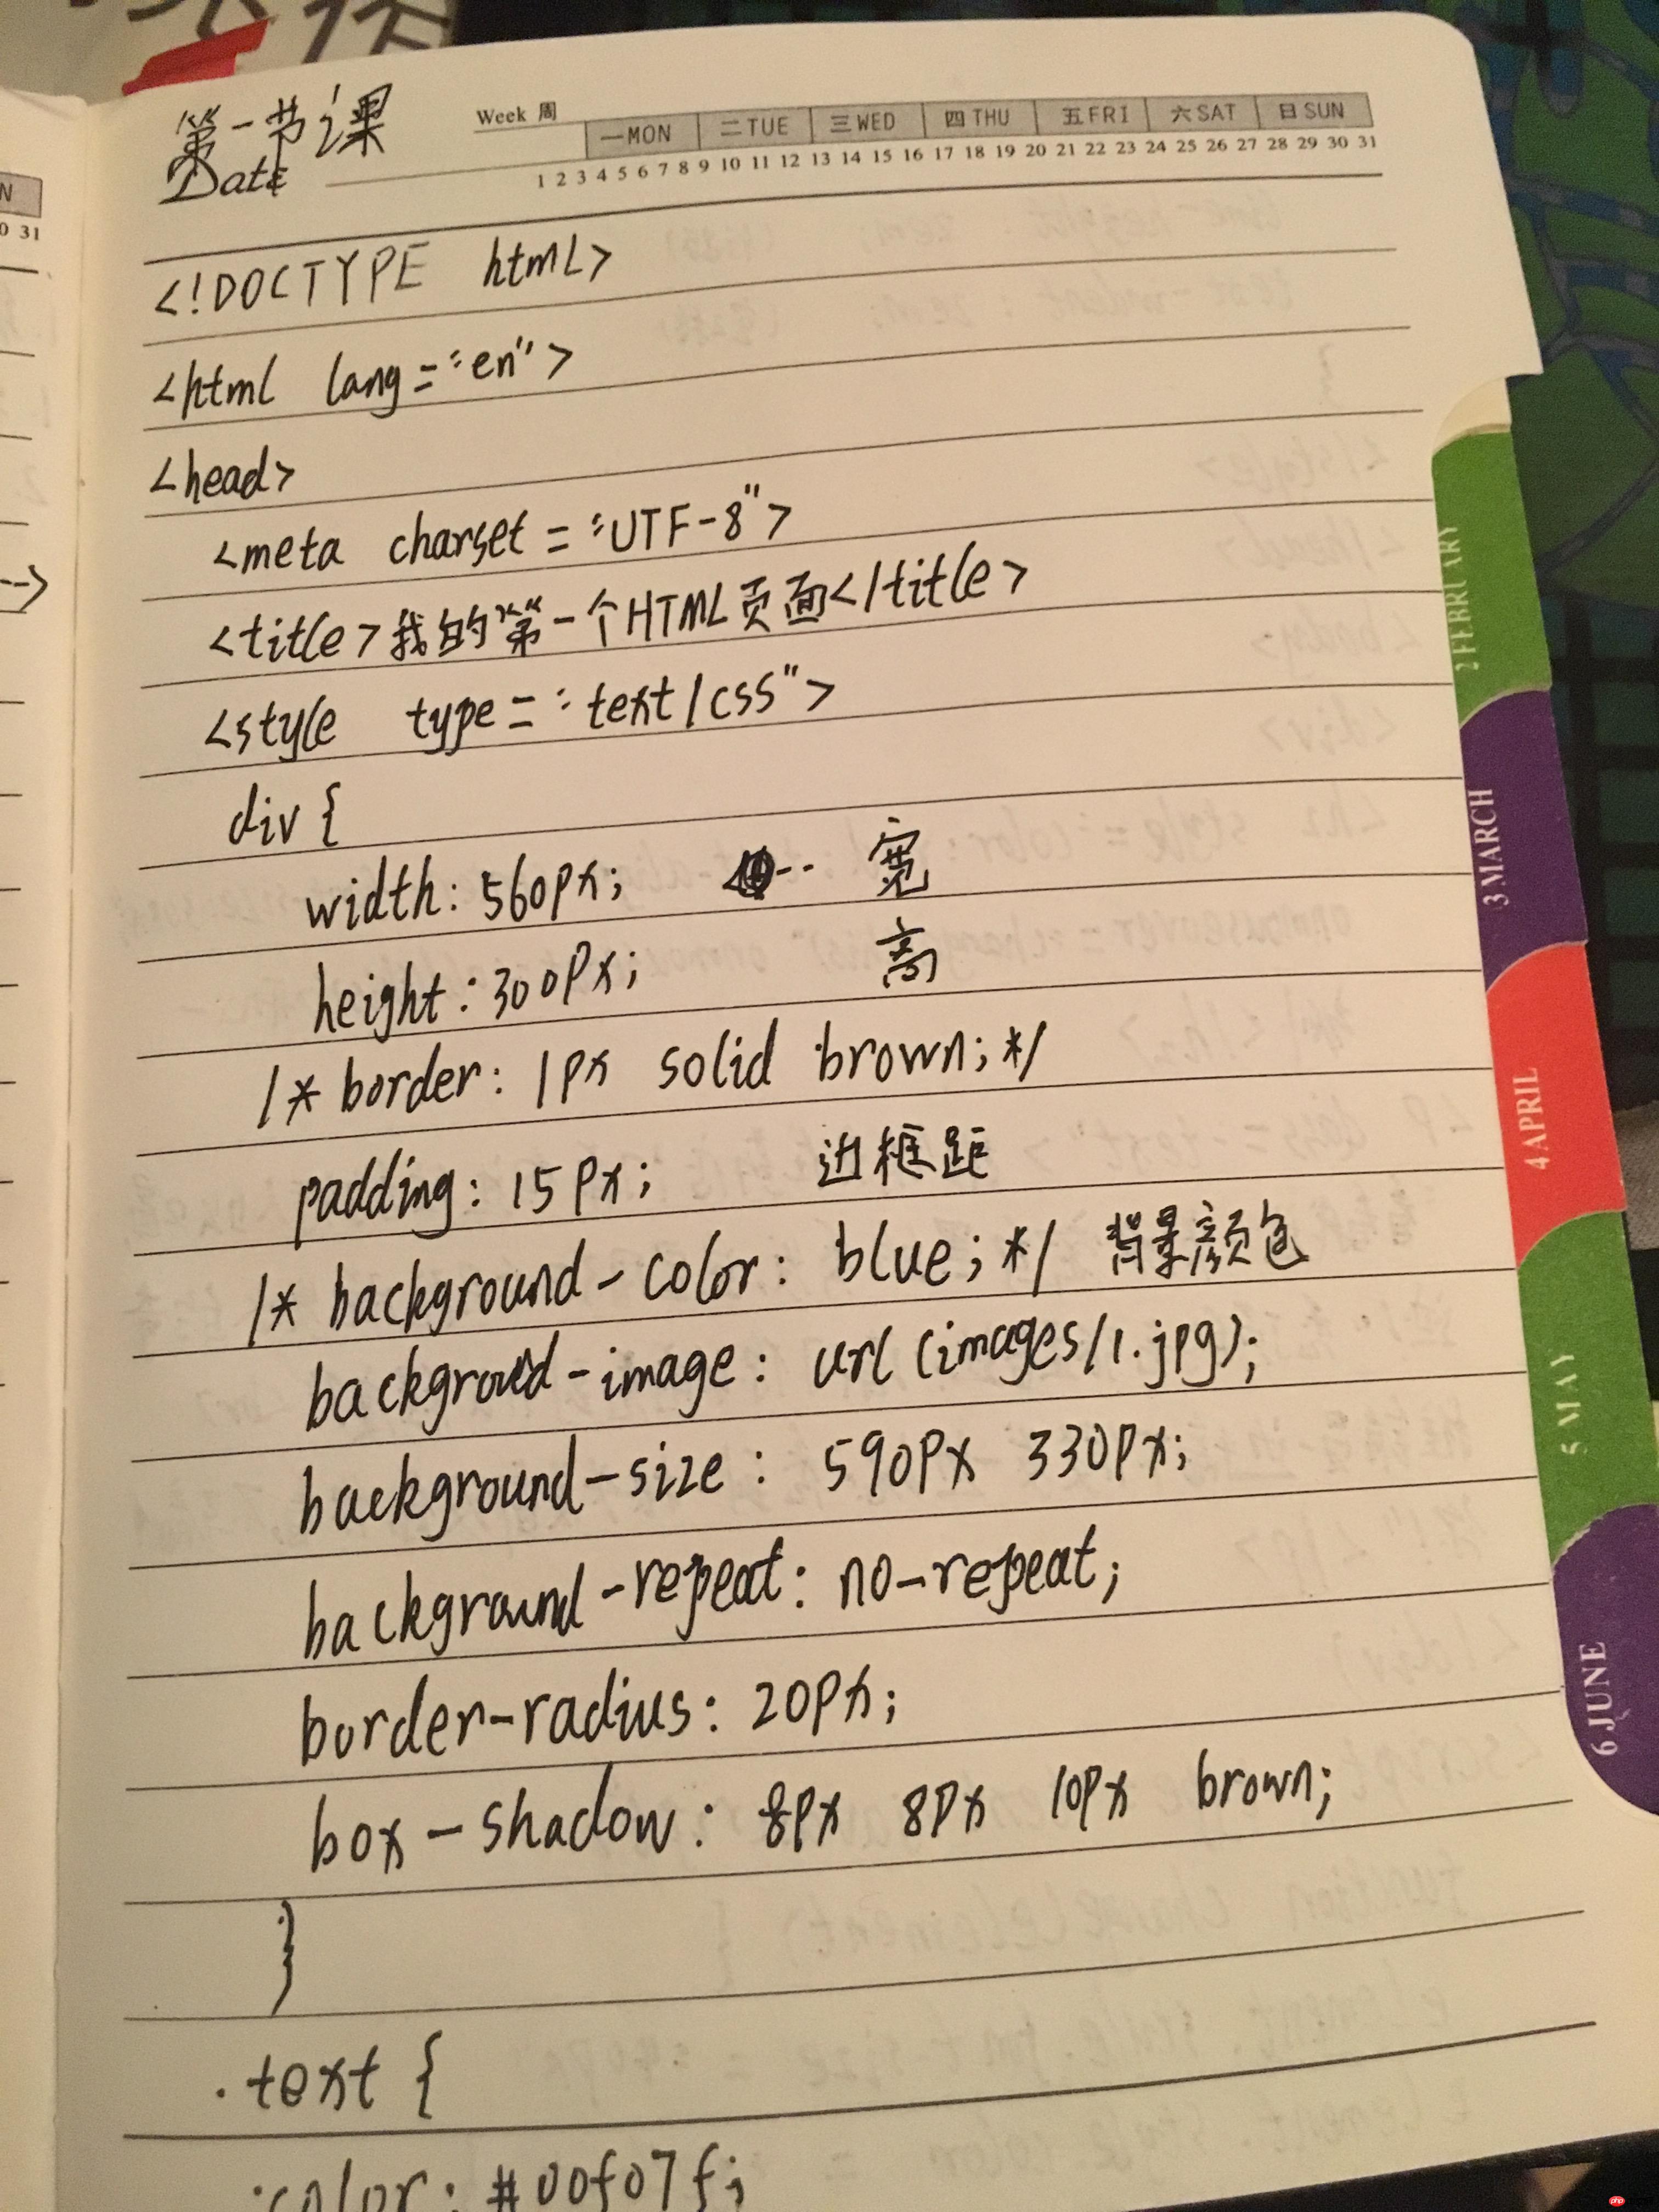 第一节课
Date
Week 周
一MON 二TUE 三WED 四THU 五FRI 六SAT 日SUN
1 2 3 4 5 6 7 8 9 10 11 12 13 14 15 16 17 18 19 20 21 22 23 24 25 26 27 28 29 30 31
N
0 31
<!DOCTYPE html>
<html lang="en">
<head>
<meta charset="UTF-8">
<title>我的第一个HTML页面</title>
<style type="text/css">
div {
width: 560px; 宽
height: 300px; 高
/* border: 1px solid brown; */
padding: 15px; 边框距
/* background-color: blue; */ 背景颜色
background-image: url(images/1.jpg);
background-size: 590px 330px;
background-repeat: no-repeat;
border-radius: 20px;
box-shadow: 8px 8px 10px brown;
}
.text {
color: #00f07f;
2 FEBRUARY
3 MARCH
4 APRIL
5 MAY
6 JUNE
php